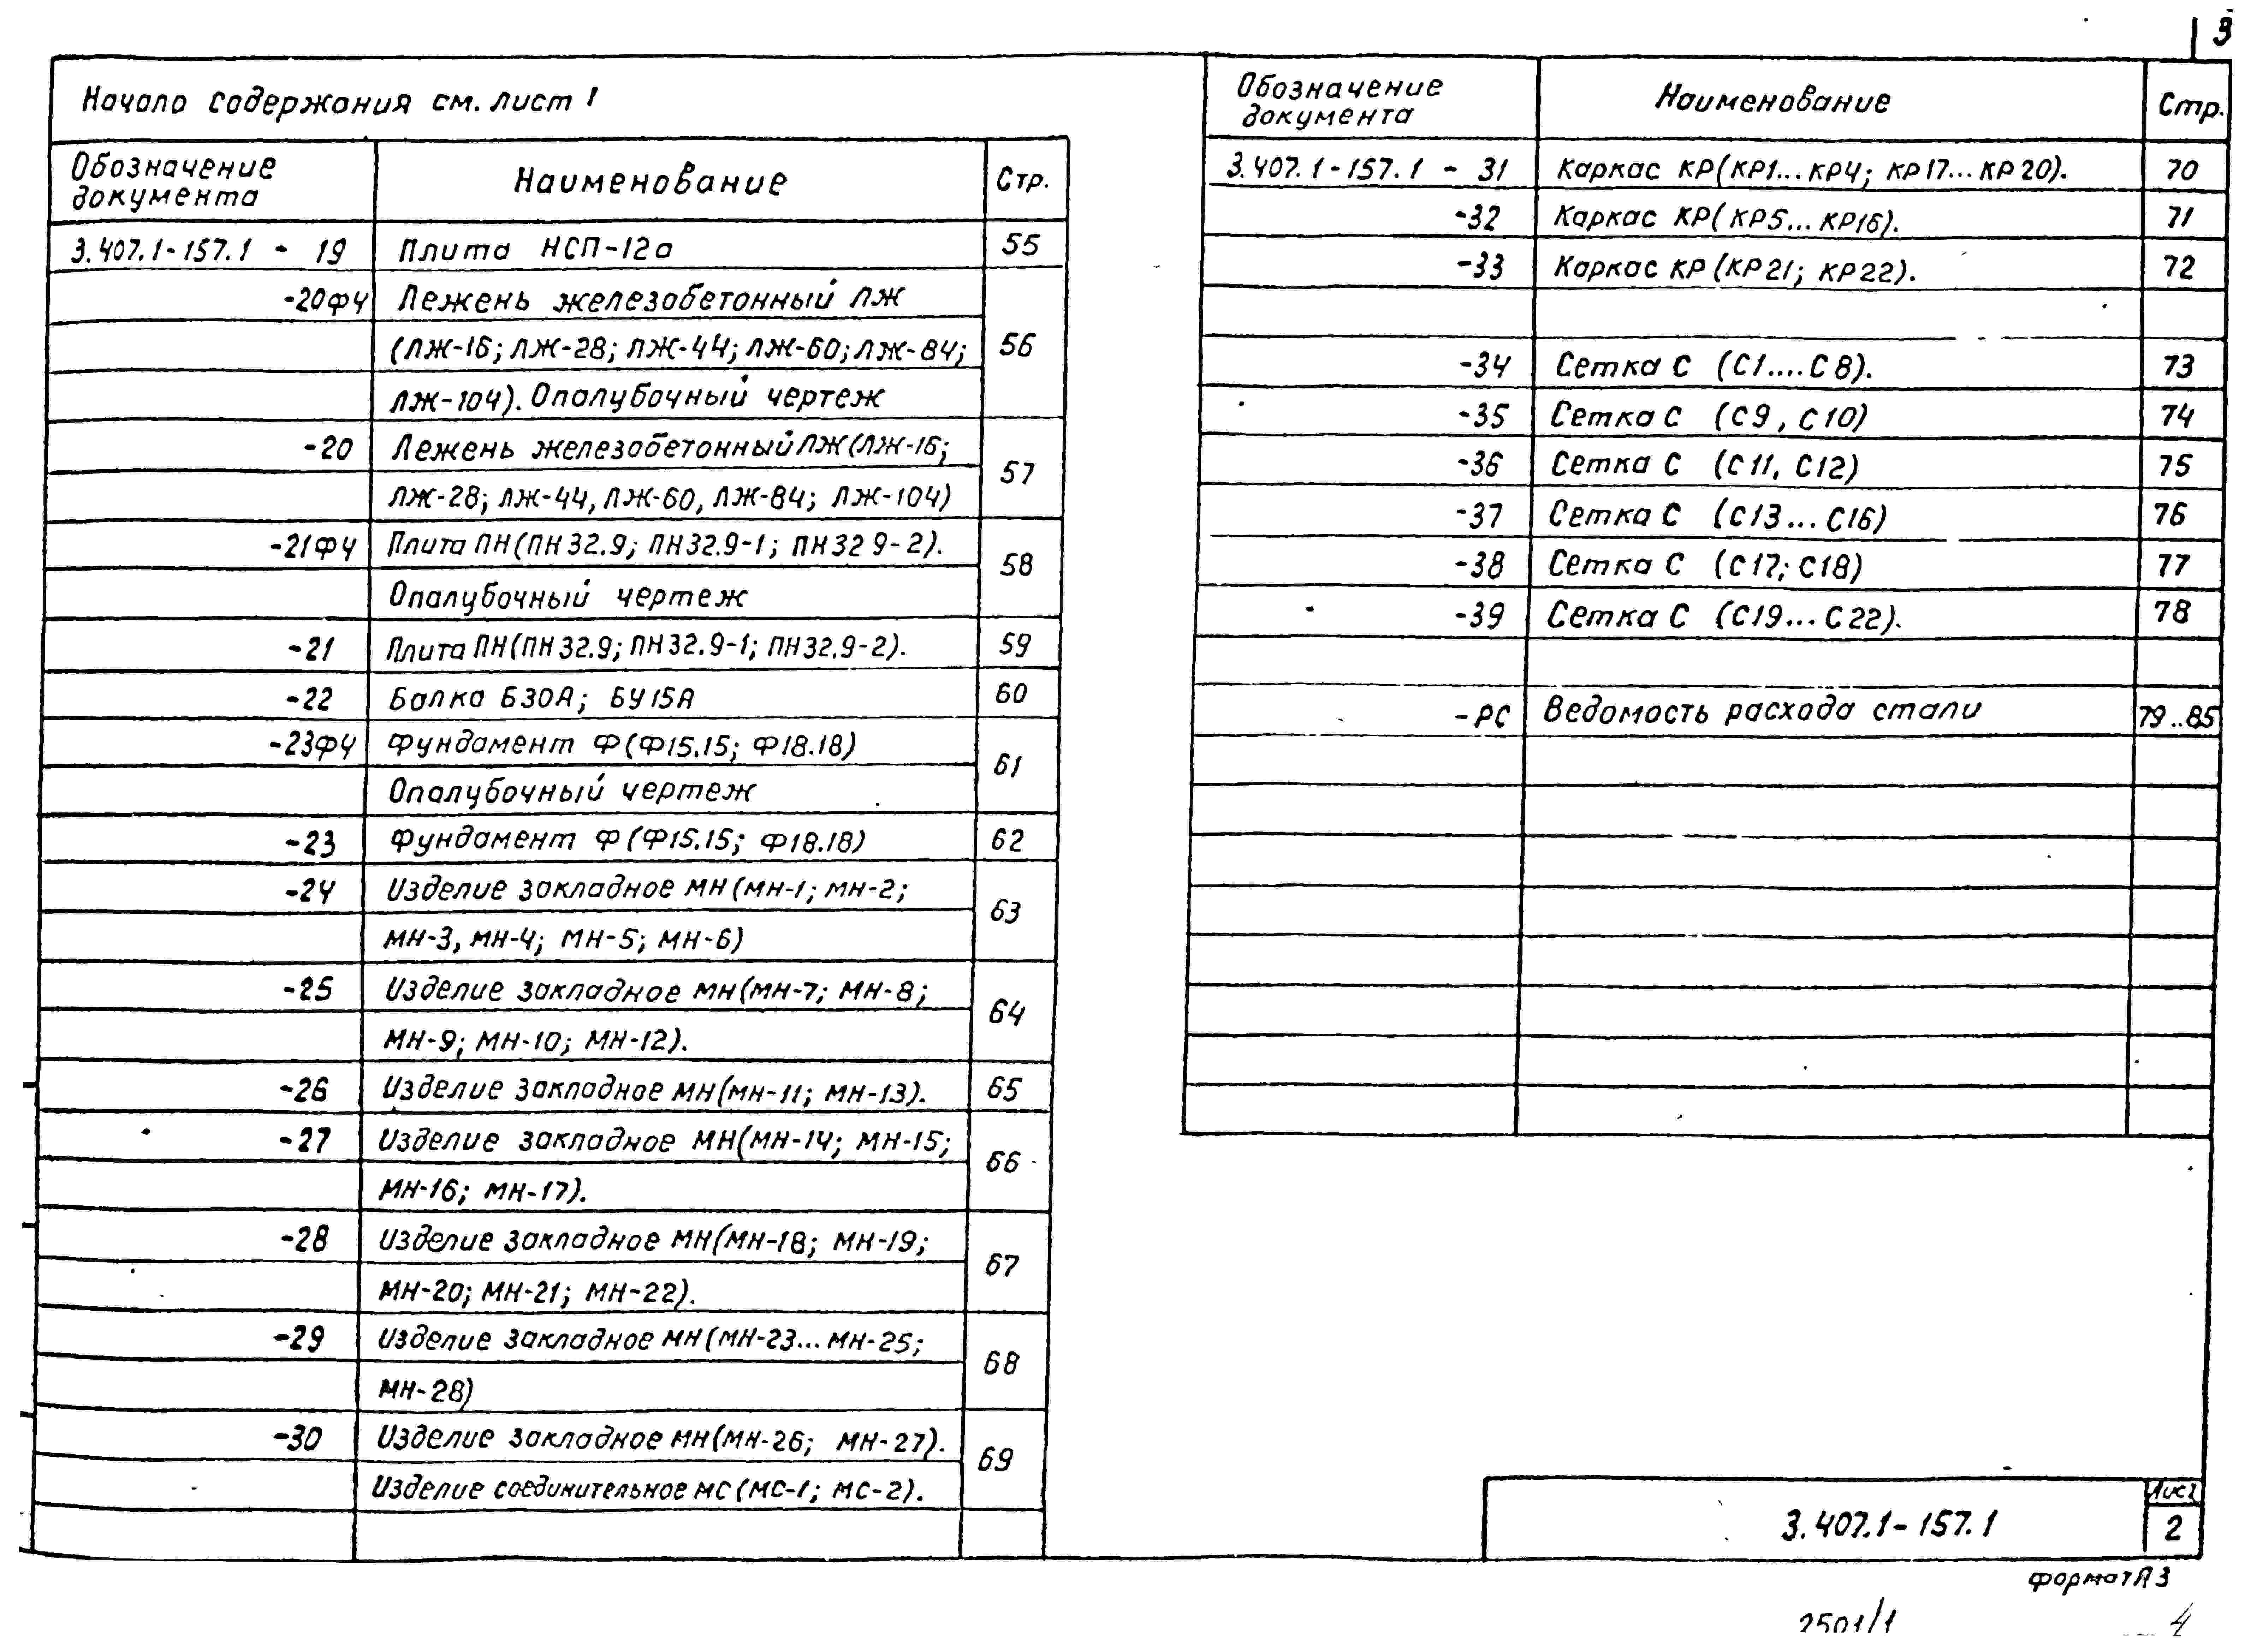 3
Начало содержания см. лист 1
Обозначение документа Наименование Стр.
3.407.1-157.1 - 19 Плита НСП-12а 55
-20ФЧ Лежень железобетонный ЛЖ
(ЛЖ-16; ЛЖ-28; ЛЖ-44; ЛЖ-60; ЛЖ-84; 56
ЛЖ-104). Опалубочный чертеж
-20 Лежень железобетонный ЛЖ(ЛЖ-16;
ЛЖ-28; ЛЖ-44, ЛЖ-60, ЛЖ-84; ЛЖ-104) 57
-21ФЧ Плита ПН(ПН32.9; ПН32.9-1; ПН32 9-2).
Опалубочный чертеж 58
-21 Плита ПН(ПН32.9; ПН32.9-1; ПН32.9-2). 59
-22 Балка Б30А; БУ15А 60
-23ФЧ Фундамент Ф(Ф15.15; Ф18.18)
Опалубочный чертеж 61
-23 Фундамент Ф(Ф15.15; Ф18.18) 62
-24 Изделие закладное МН(МН-1; МН-2;
МН-3, МН-4; МН-5; МН-6) 63
-25 Изделие закладное МН(МН-7; МН-8;
МН-9; МН-10; МН-12). 64
-26 Изделие закладное МН(МН-11; МН-13). 65
-27 Изделие закладное МН(МН-14; МН-15;
МН-16; МН-17). 66
-28 Изделие закладное МН(МН-18; МН-19;
МН-20; МН-21; МН-22). 67
-29 Изделие закладное МН(МН-23...МН-25;
МН-28) 68
-30 Изделие закладное МН(МН-26; МН-27).
Изделие соединительное МС(МС-1; МС-2). 69
Обозначение документа Наименование Стр.
3.407.1-157.1 - 31 Каркас КР(КР1...КР4; КР17...КР20). 70
-32 Каркас КР(КР5...КР16). 71
-33 Каркас КР(КР21; КР22). 72
-34 Сетка С (С1....С8). 73
-35 Сетка С (С9, С10) 74
-36 Сетка С (С11, С12) 75
-37 Сетка С (С13...С16) 76
-38 Сетка С (С17; С18) 77
-39 Сетка С (С19...С22). 78
-РС Ведомость расхода стали 79..85
3.407.1-157.1
Лист
2
формат А3
2501/1 4